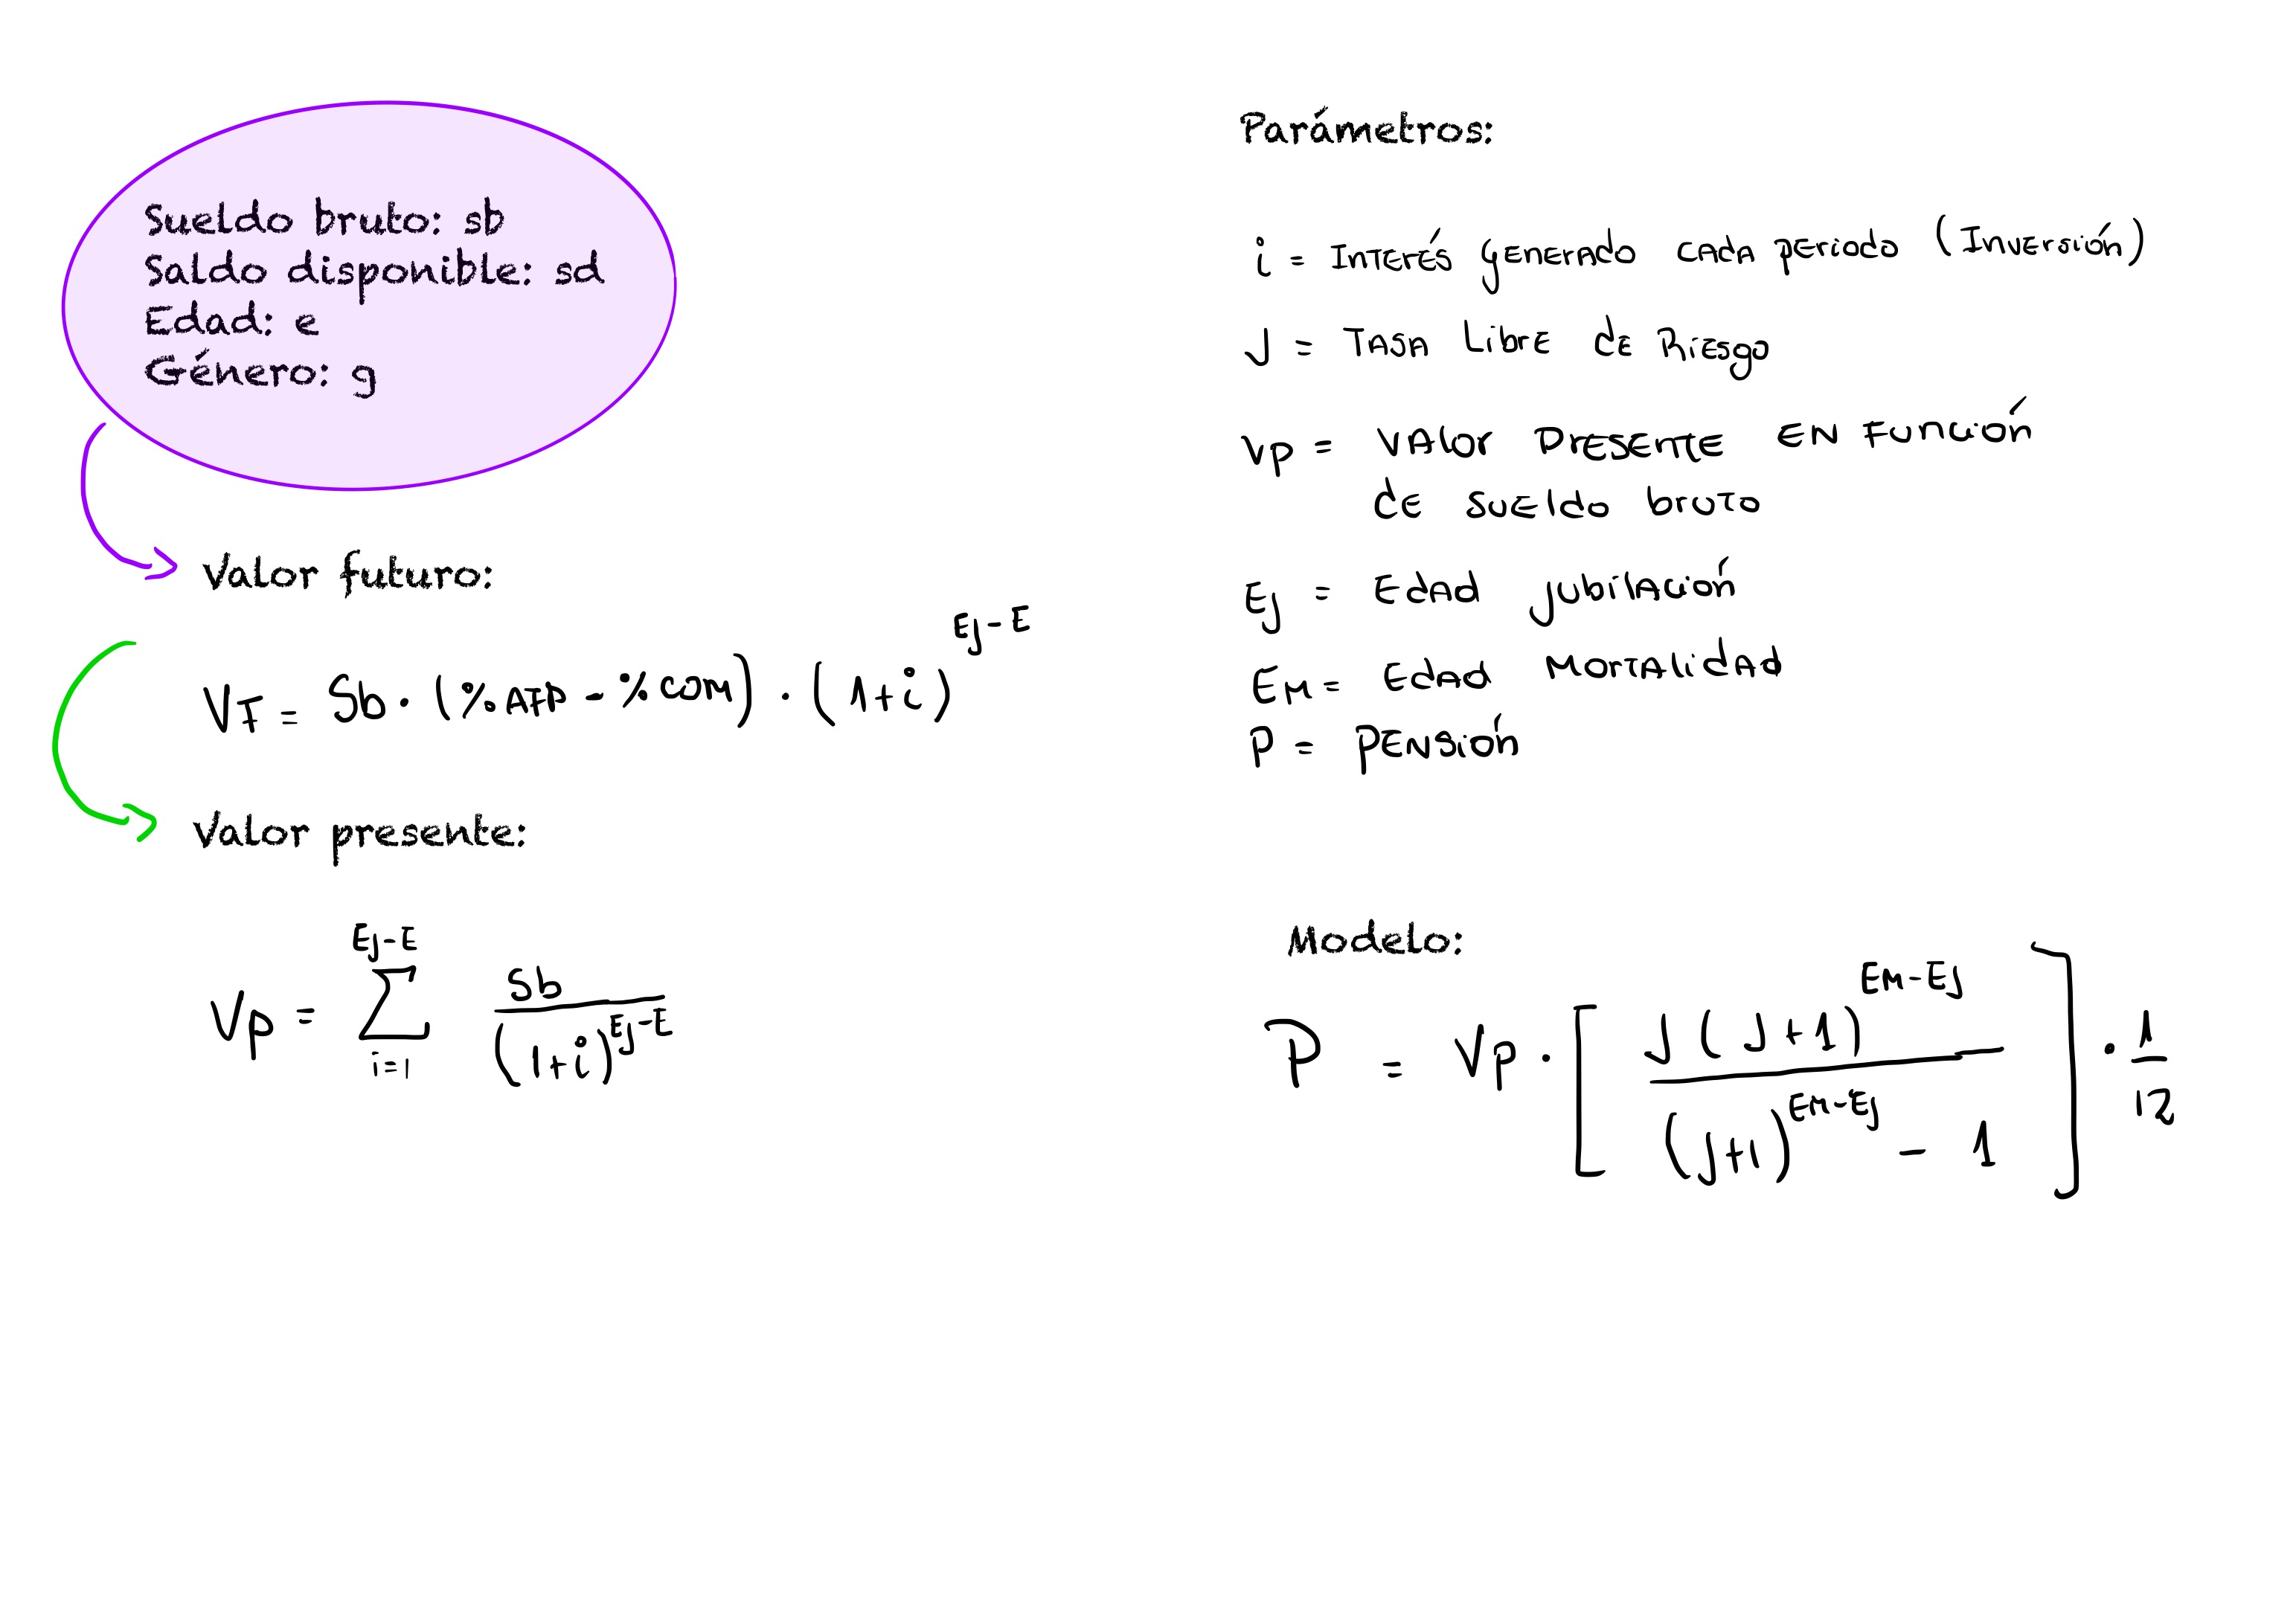 Sueldo bruto: sb
Saldo disponible: sd
Edad: e
Género: g
Valor futuro:
VF = Sb · (%AFP - %COM) · (1+i)^{Ej-E}
Valor presente:
Vp = \sum_{i=1}^{Ej-E} \frac{Sb}{(1+i)^{Ej-E}}
Parámetros:
i = Interés generado cada periodo (Inversión)
J = Tasa Libre de Riesgo
Vp = Valor Presente en Función
de sueldo bruto
Ej = Edad jubilación
Em = Edad Mortalidad
P = Pensión
Modelo:
P = Vp · [ \frac{J(J+1)^{Em-Ej}}{(J+1)^{Em-Ej} - 1} ] · \frac{1}{12}